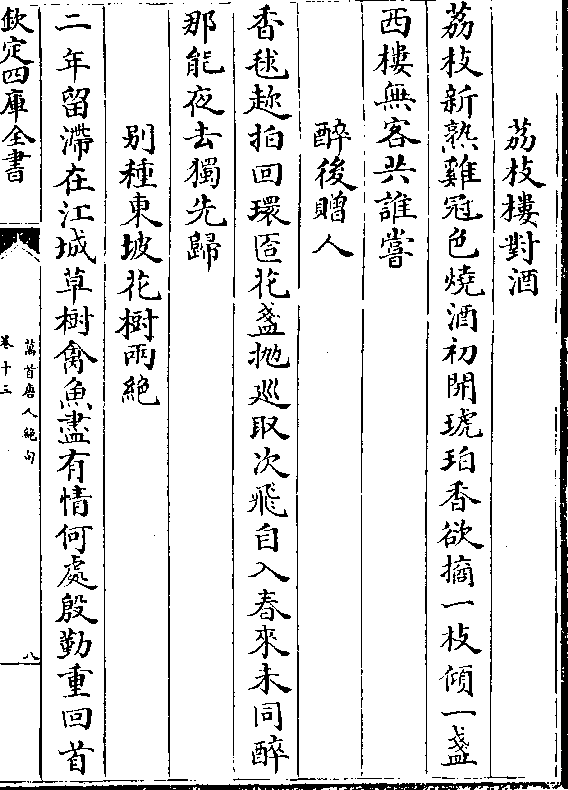 荔枝樓對酒
荔枝新熟雞冠色燒酒初開琥珀香欲摘一枝傾一盞
西樓無客共誰嘗
醉後贈人
香毬趂拍回環匼花盞抛巡取次飛自入春來未同醉
那能夜去獨先歸
别種東坡花樹兩絶
二年留滯在江城草樹禽魚盡有情何處殷勤重回首
欽定四庫全書
萬首唐人絶句
卷十三
八